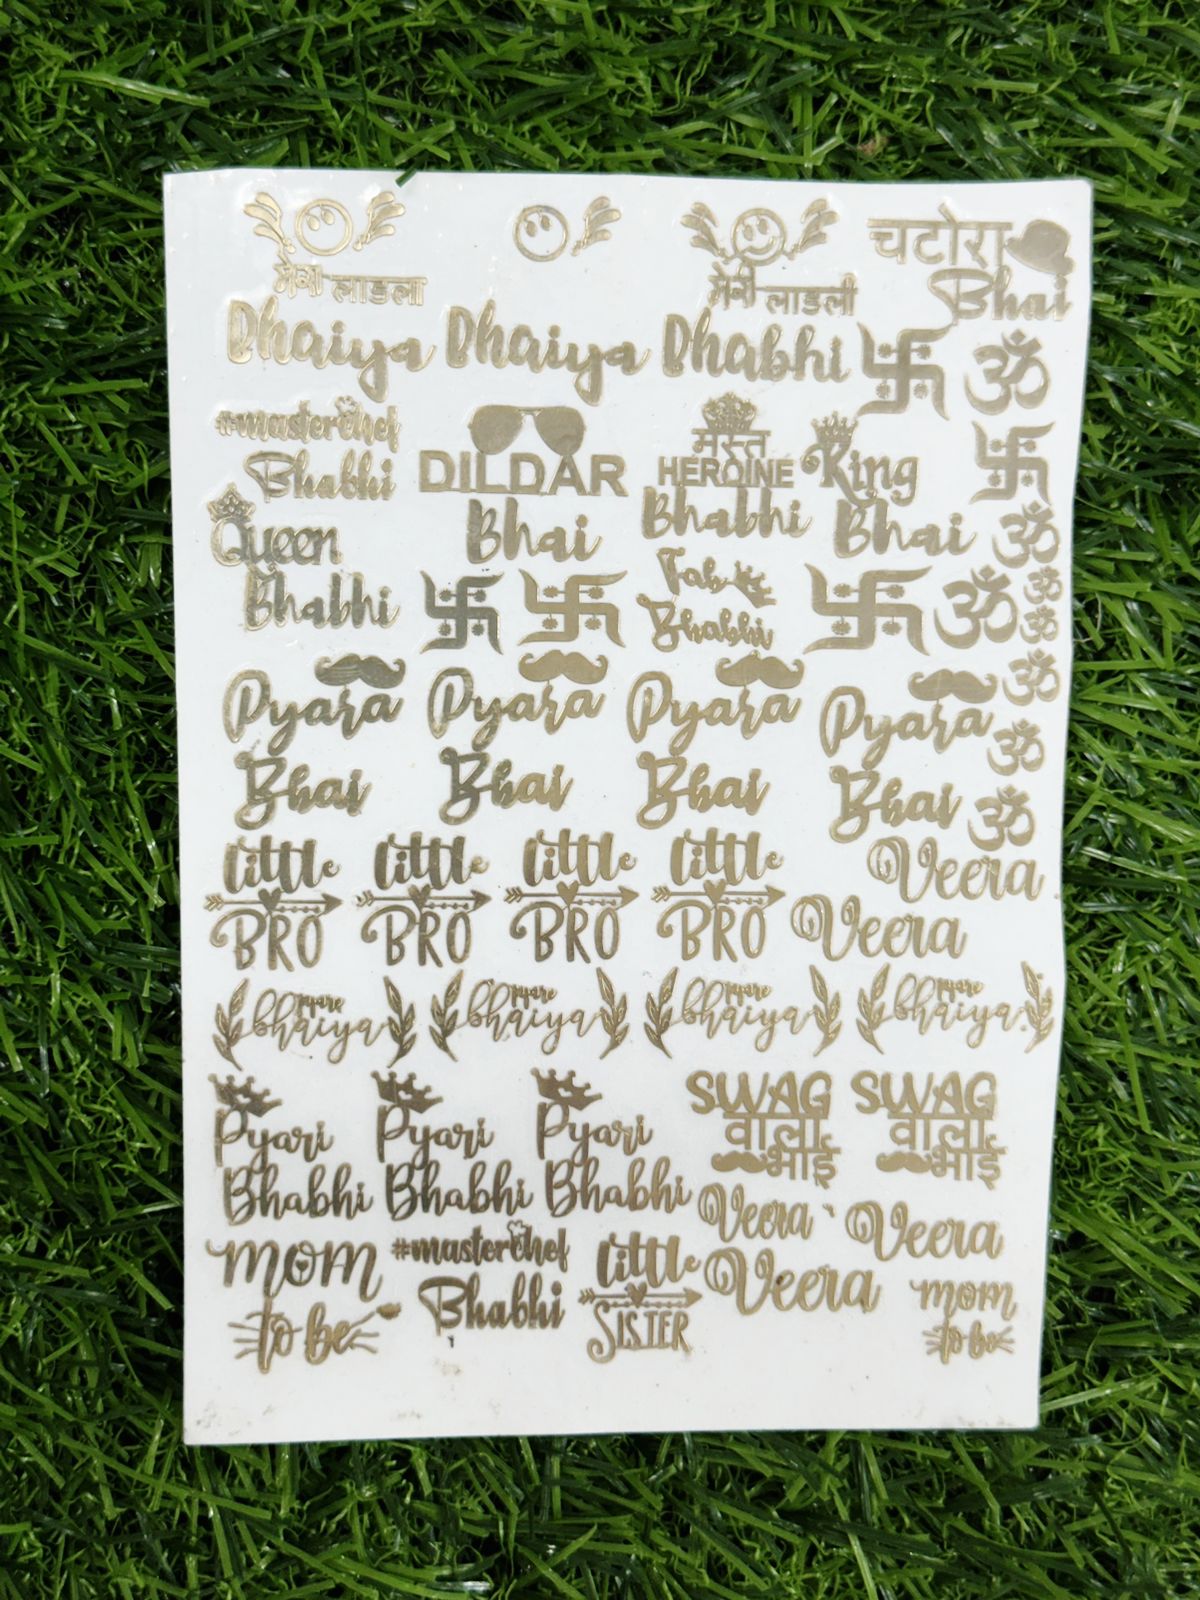 मेरा लाडला
Bhaiya
Bhaiya
मेरी लाडली
Bhabhi
चटोरा
Bhai
ॐ
#masterchef
Bhabhi
DILDAR
Bhai
मस्त
HEROINE
Bhabhi
King
Bhai
ॐ
Queen
Bhabhi
Fab
Bhabhi
ॐ
ॐ
ॐ
Pyara
Bhai
Pyara
Bhai
Pyara
Bhai
Pyara
Bhai
ॐ
ॐ
ॐ
little
BRO
little
BRO
little
BRO
little
BRO
Veera
Veera
pyare
bhaiya
pyare
bhaiya
pyare
bhaiya
pyare
bhaiya
Pyari
Bhabhi
Pyari
Bhabhi
Pyari
Bhabhi
SWAG
वाला
भाई
SWAG
वाला
भाई
Veera
Veera
mom
to be
#masterchef
Bhabhi
little
SISTER
Veera
mom
to be